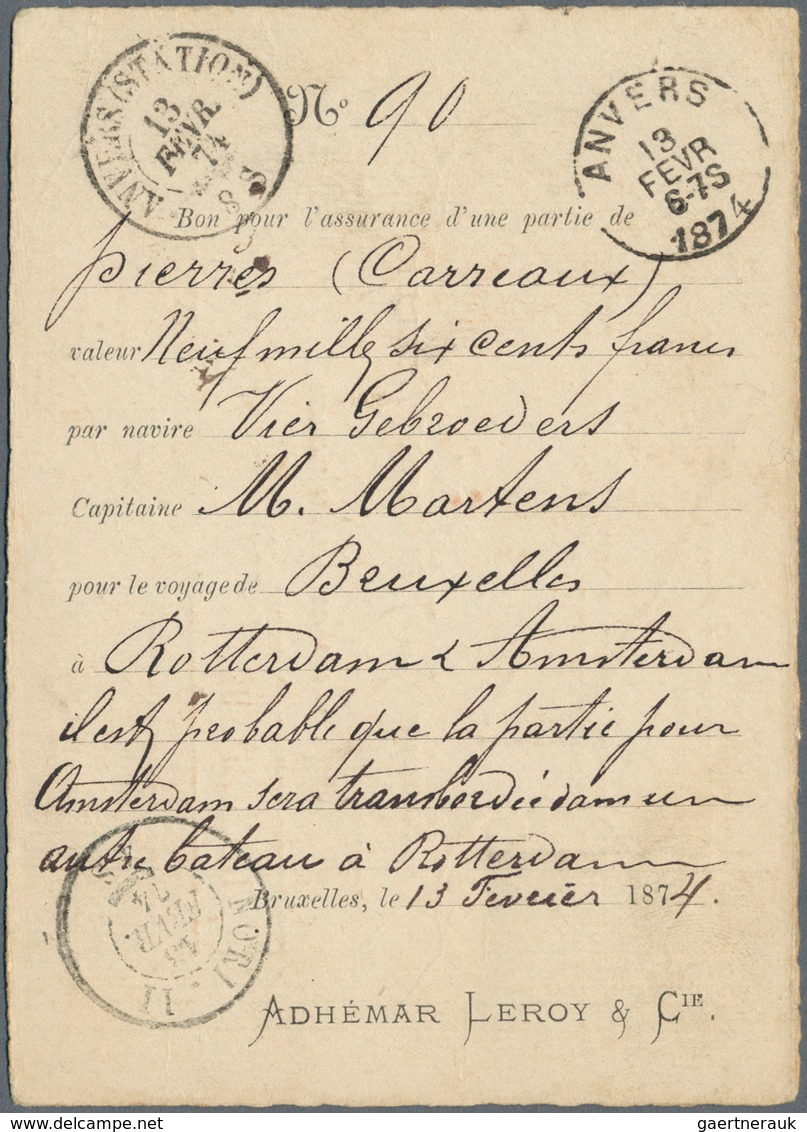 ANVERS (STATION)
13
FÉVR
74
8 S
No 90
ANVERS
13
FEVR
6-7S
1874
Bon pour l'assurance d'une partie de
pierres (Carreaux)
valeur Neuf mille six cents francs
par navire Vier Gebroeders
Capitaine M. Martens
pour le voyage de Bruxelles
à Rotterdam & Amsterdam
il est probable que la partie pour
Amsterdam sera transbordée dans un
autre bateau à Rotterdam
Bruxelles, le 13 Fevrier 1874.
13
FÉVR.
74
ADHÉMAR LEROY & CIE.
gaertnerauk